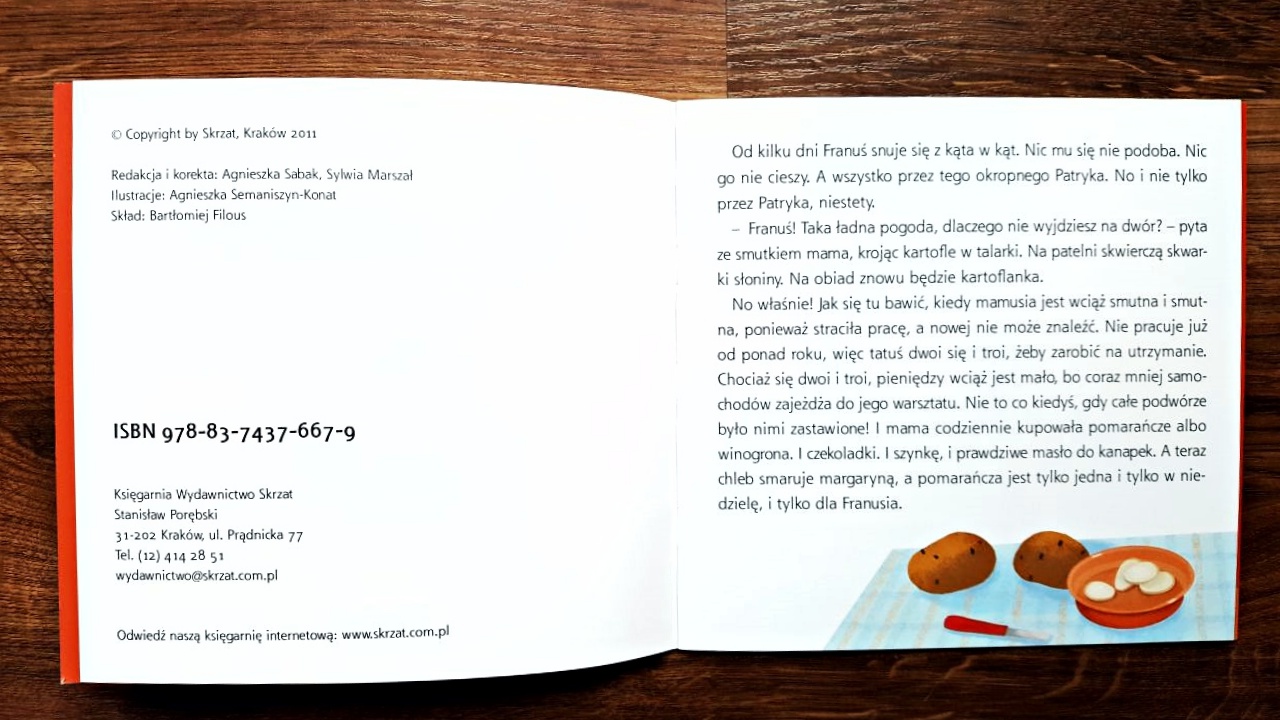 © Copyright by Skrzat, Kraków 2011
Redakcja i korekta: Agnieszka Sabak, Sylwia Marszał
Ilustracje: Agnieszka Semaniszyn-Konat
Skład: Bartłomiej Filous
ISBN 978-83-7437-667-9
Księgarnia Wydawnictwo Skrzat
Stanisław Porębski
31-202 Kraków, ul. Prądnicka 77
Tel. (12) 414 28 51
wydawnictwo@skrzat.com.pl
Odwiedź naszą księgarnię internetową: www.skrzat.com.pl
Od kilku dni Franuś snuje się z kąta w kąt. Nic mu się nie podoba. Nic
go nie cieszy. A wszystko przez tego okropnego Patryka. No i nie tylko
przez Patryka, niestety.
– Franuś! Taka ładna pogoda, dlaczego nie wyjdziesz na dwór? – pyta
ze smutkiem mama, krojąc kartofle w talarki. Na patelni skwierczą skwar-
ki słoniny. Na obiad znowu będzie kartoflanka.
No właśnie! Jak się tu bawić, kiedy mamusia jest wciąż smutna i smut-
na, ponieważ straciła pracę, a nowej nie może znaleźć. Nie pracuje już
od ponad roku, więc tatuś dwoi się i troi, żeby zarobić na utrzymanie.
Chociaż się dwoi i troi, pieniędzy wciąż jest mało, bo coraz mniej samo-
chodów zajeżdża do jego warsztatu. Nie to co kiedyś, gdy całe podwórze
było nimi zastawione! I mama codziennie kupowała pomarańcze albo
winogrona. I czekoladki. I szynkę, i prawdziwe masło do kanapek. A teraz
chleb smaruje margaryną, a pomarańcza jest tylko jedna i tylko w nie-
dzielę, i tylko dla Franusia.